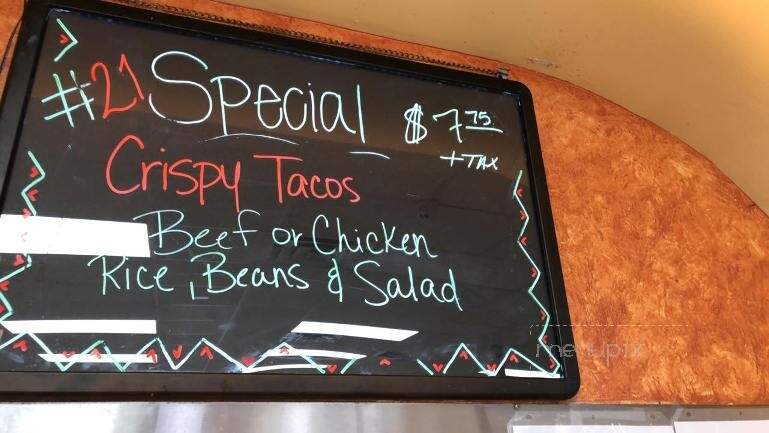 #21 Special $7.75
+TAX
Crispy Tacos
Beef or Chicken
Rice, Beans & Salad
menupix